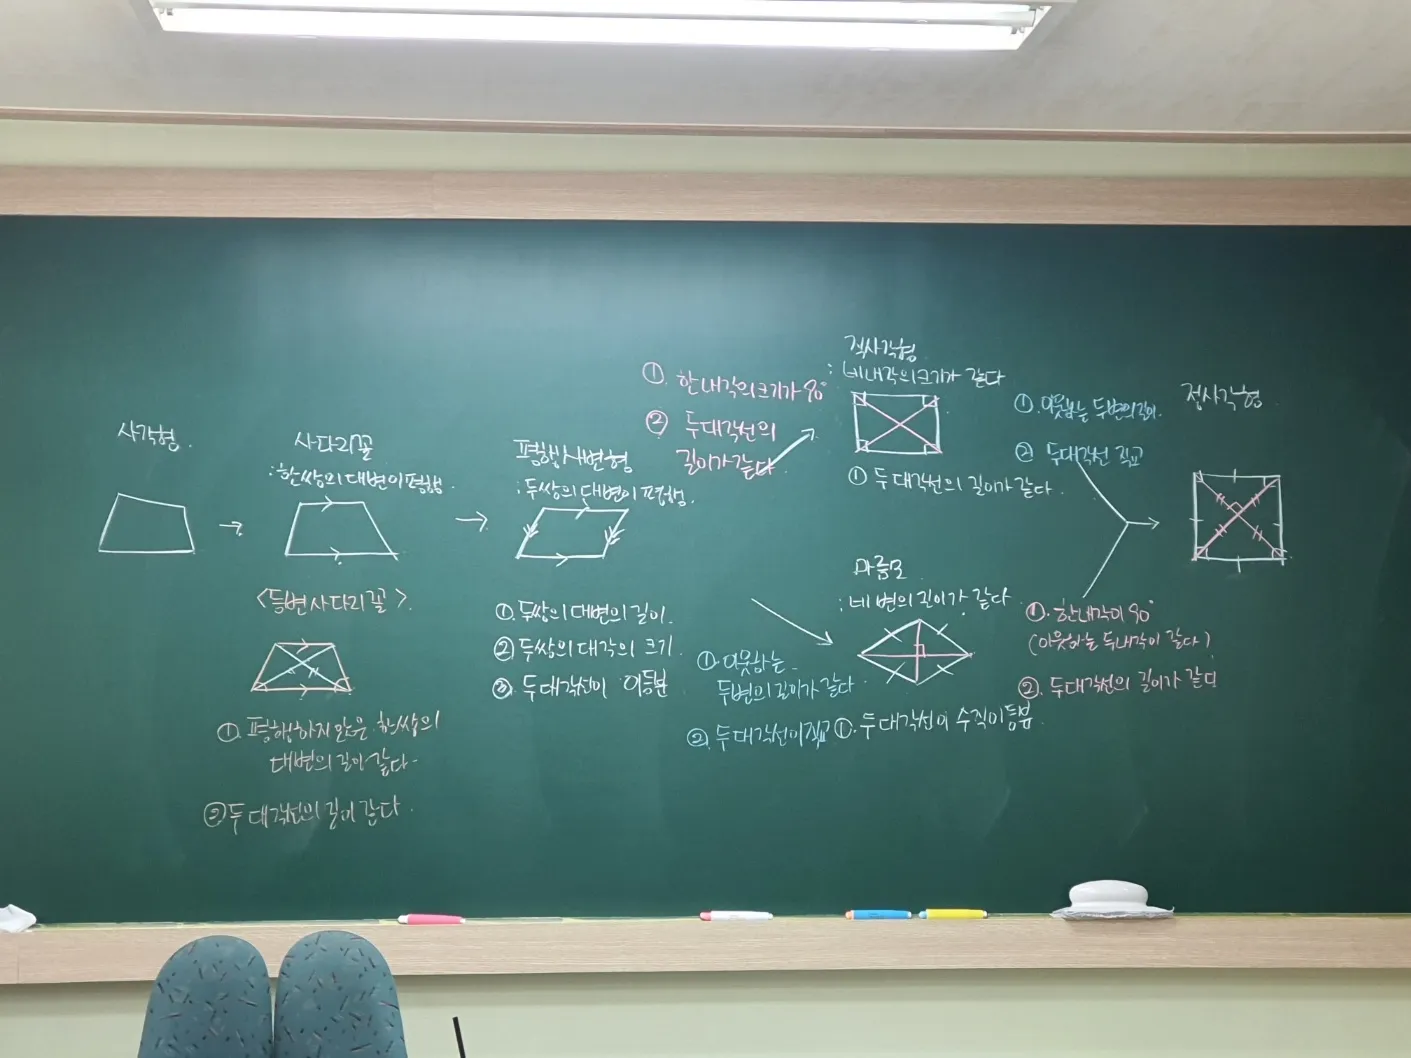 사각형
사다리꼴
: 한쌍의 대변이 평행
<등변사다리꼴>
① 평행하지 않은 한쌍의
대변의 길이 같다
② 두 대각선의 길이 같다
평행사변형
: 두쌍의 대변이 평행
① 두쌍의 대변의 길이
② 두쌍의 대각의 크기
③ 두 대각선이 이등분
① 한 내각의 크기가 90°
② 두 대각선의
길이가 같다
직사각형
: 네 내각의 크기가 같다
① 두 대각선의 길이가 같다
① 이웃하는
두변의 길이가 같다
② 두 대각선이 직교
마름모
: 네 변의 길이가 같다
① 두 대각선이 수직이등분
① 이웃하는 두변의 길이
② 두 대각선 직교
① 한 내각이 90°
(이웃하는 두 내각이 같다)
② 두 대각선의 길이가 같다
정사각형